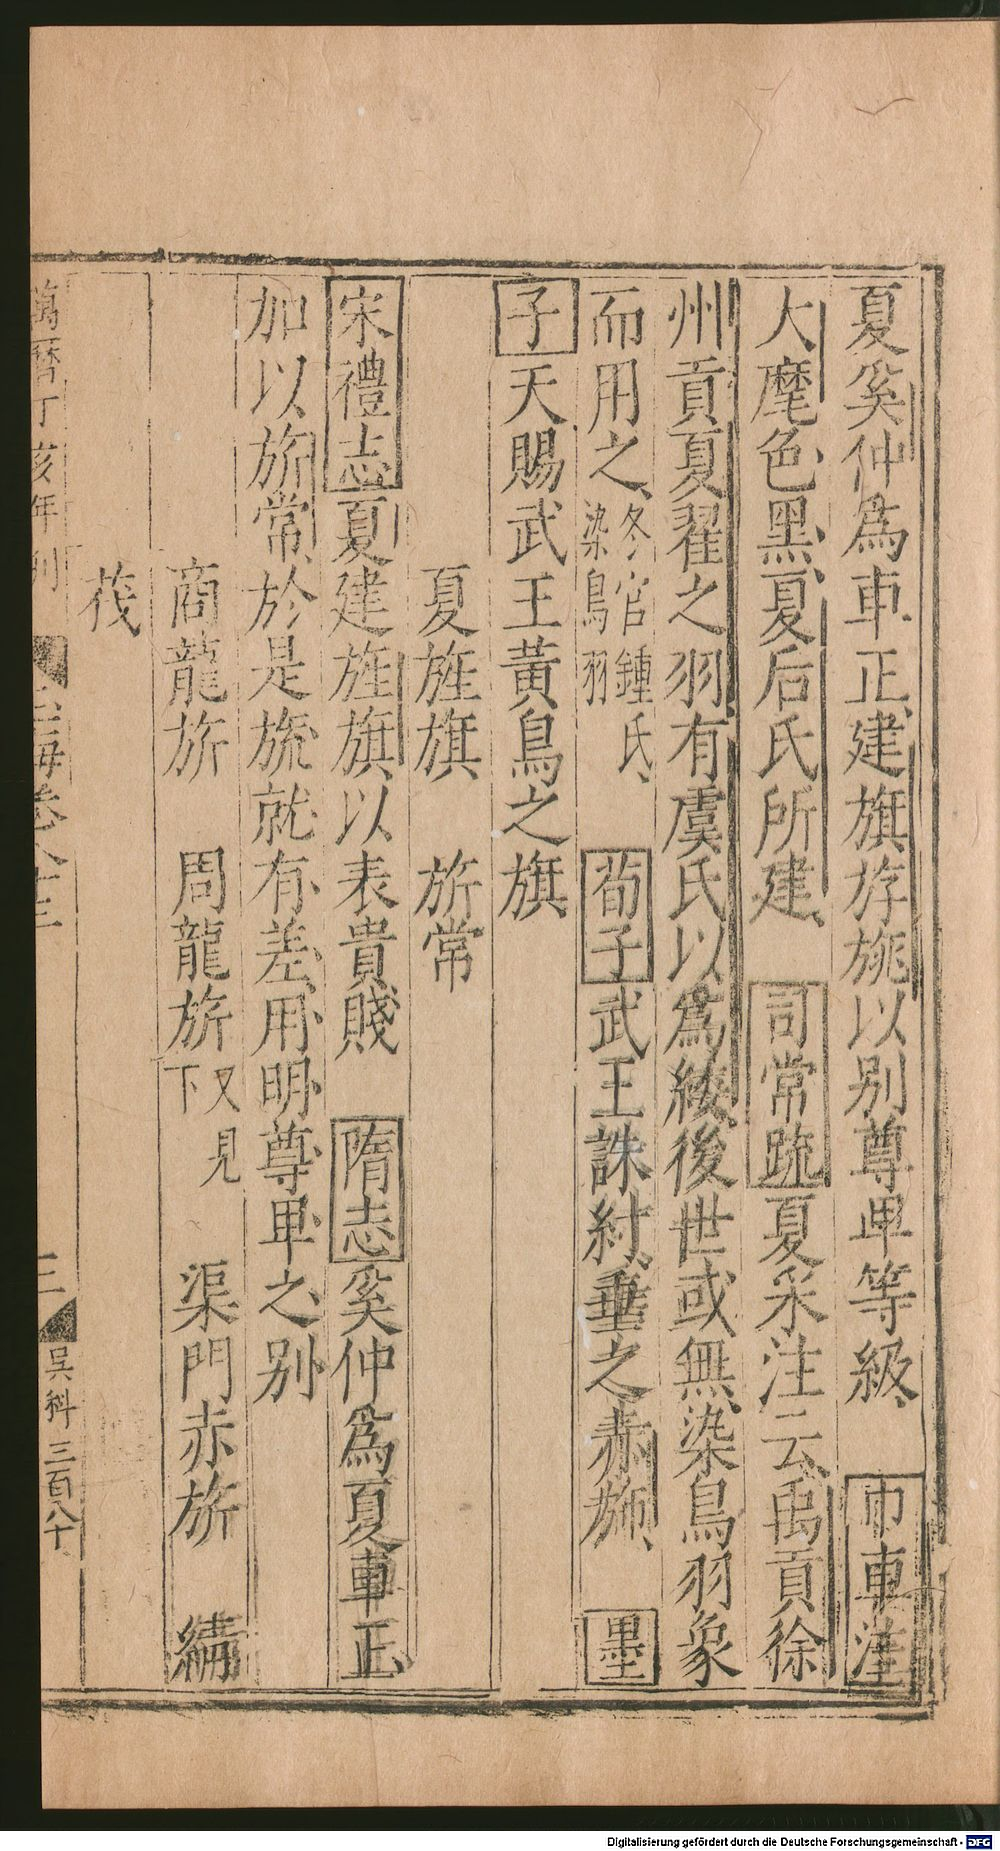 夏奚仲爲車正建旗斿旐以别尊卑等級巾車注
大麾色黑夏后氏所建司常疏夏采注云禹貢徐
州貢夏翟之羽有虞氏以爲緌後世或無染鳥羽象
而用之冬官鍾氏染鳥羽荀子武王誅紂垂之赤斾墨
子天賜武王黃鳥之旗
夏旌旗 旂常
宋禮志夏建旌旗以表貴賤隋志奚仲爲夏車正
加以旂常於是旒就有差用明尊卑之别
商龍旂 周龍旂又見下 渠門赤旂 綪
茷
萬曆丁亥年刊
玉海卷八十三
三
吳科三百八十
Digitalisierung gefördert durch die Deutsche Forschungsgemeinschaft - DFG